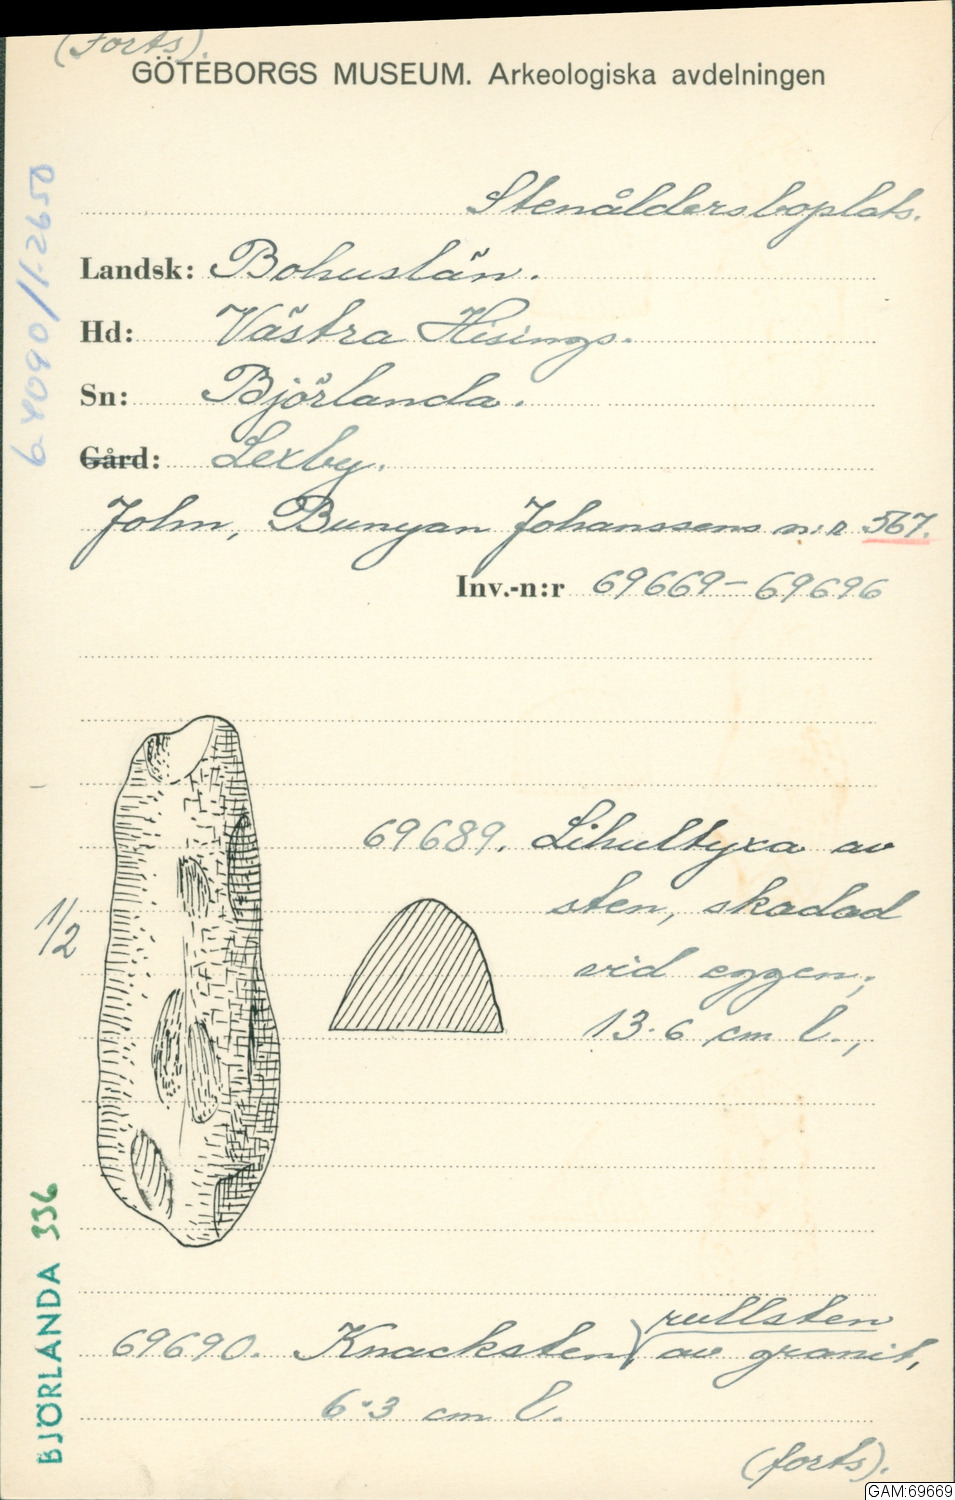 (Forts).
GÖTEBORGS MUSEUM. Arkeologiska avdelningen
Stenåldersboplats.
Landsk: Bohuslän.
Hd: Västra Hisings.
Sn: Björlanda.
Gård: Lexby.
John, Bunyan Johanssens n:r 567.
Inv.-n:r 69669-69696
64090/1-2650
1/2
69689. Lihultyxa av
sten, skadad
vid eggen;
13.6 cm l.,
BJÖRLANDA 336
rullsten
69690. Knacksten av granit,
6.3 cm l.
(forts).
GAM:69669